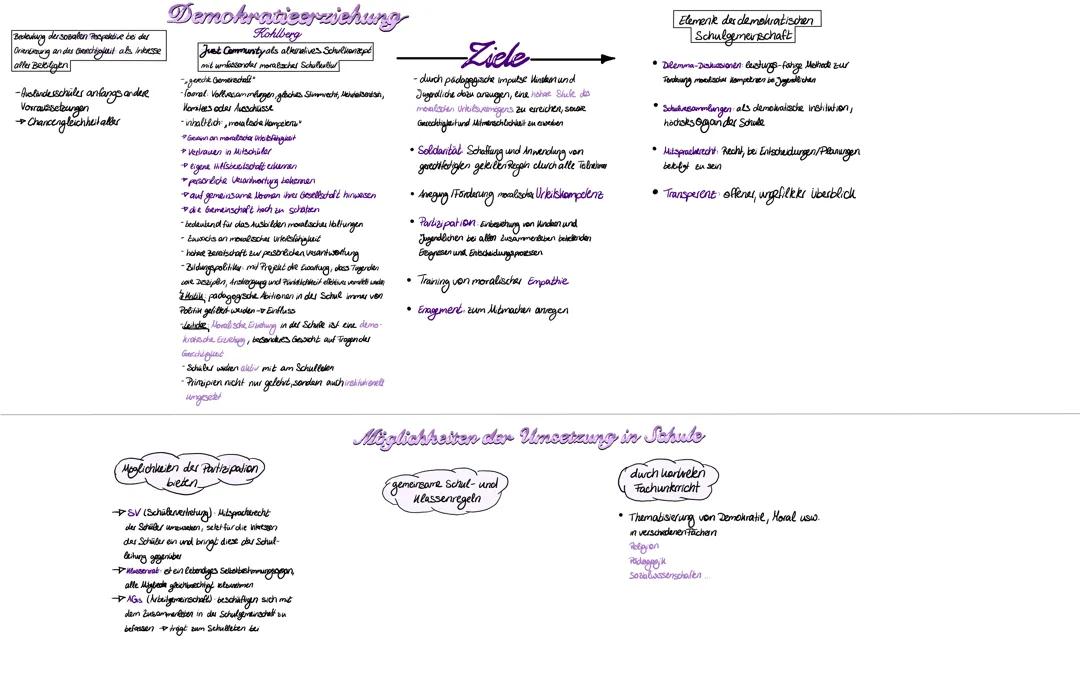 Demokratieerziehung
Kohlberg
Bedeutung der sozialen Perspektive bei der
Orientierung an der Gerechtigkeit als Interesse
aller Beteiligten
- Ausländerschüler anfangs andere
Voraussetzungen
→ Chancengleichheit aller
Just Community als alternatives Schulkonzept
mit umfassender moralischer Schulkultur
- „gerechte Gemeinschaft"
- formal: Vollversammlungen, gleiches Stimmrecht, Mehrheitsentsch.,
Komitees oder Ausschüsse
- inhaltlich: „moralische Kompetenz"
→ Gewinn an moralischer Urteilsfähigkeit
→ Vertrauen in Mitschüler
→ eigene Hilfsbereitschaft erkennen
→ persönliche Verantwortung bekennen
→ auf gemeinsame Normen ihrer Gesellschaft hinweisen
→ die Gemeinschaft hoch zu schätzen
- bedeutend für das Ausbilden moralischer Haltungen
- Zuwachs an moralischer Urteilsfähigkeit
- höhere Bereitschaft zur persönlichen Verantwortung
- Bildungspolitiker: mit Projekt die Erwartung, dass Tugenden
wie Disziplin, Anstrengung und Pünktlichkeit effektiver vermittelt werden
Kritik: pädagogische Ambitionen in der Schule immer von
Politik gefiltert werden → Einfluss
- Leitidee: Moralische Erziehung in der Schule ist eine demo-
kratische Erziehung, besonderes Gewicht auf Fragen der
Gerechtigkeit
- Schüler wirken aktiv mit am Schulleben
- Prinzipien nicht nur gelehrt, sondern auch institutionell
umgesetzt
Ziele
- durch pädagogische Impulse Kindern und
Jugendliche dazu anzuregen, eine höhere Stufe des
moralischen Urteilsvermögens zu erreichen, sowie
Gerechtigkeit und Mitmenschlichkeit zu erwerben
• Solidarität: Schaffung und Anwendung von
gerechtfertigten geteilten Regeln durch alle Teilnehmer
• Anregung/Förderung moralischer Urteilskompetenz
• Partizipation: Einbeziehung von Kindern und
Jugendlichen bei allen das Zusammenleben betreffenden
Ereignissen und Entscheidungsprozessen
• Training von moralischer Empathie
• Enagement: zum Mitmachen anregen
Elemente der demokratischen
Schulgemeinschaft
• Dilemma-Diskussionen: leistungs-fähige Methode zur
Förderung moralischer Kompetenzen bei Jugendlichen
• Schulversammlungen: als demokratische Institution,
höchstes Organ der Schule
• Mitspracherecht: Recht, bei Entscheidungen/Planungen
beteiligt zu sein
• Transparenz: offener, ungefilterter Überblick
Möglichkeiten der Umsetzung in Schule
Möglichkeiten der Partizipation
bieten
→ SV (Schülervertretung): Mitspracherecht
der Schüler umzusetzen, setzt für die Interessen
der Schüler ein und bringt diese der Schul-
leitung gegenüber
→ Klassenrat: ist ein lebendiges Selbstbestimmungsorgan,
alle Mitglieder gleichberechtigt teilnehmen
→ AGs (Arbeitgemeinschaft): beschäftigen sich mit
dem Zusammenleben in der Schulgemeinschaft zu
befassen → trägt zum Schulleben bei
gemeinsame Schul- und
Klassenregeln
durch konkreten
Fachunterricht
• Thematisierung von Demokratie, Moral usw.
in verschiedenen Fächern
Religion
Pädagogik
Sozialwissenschaften ...